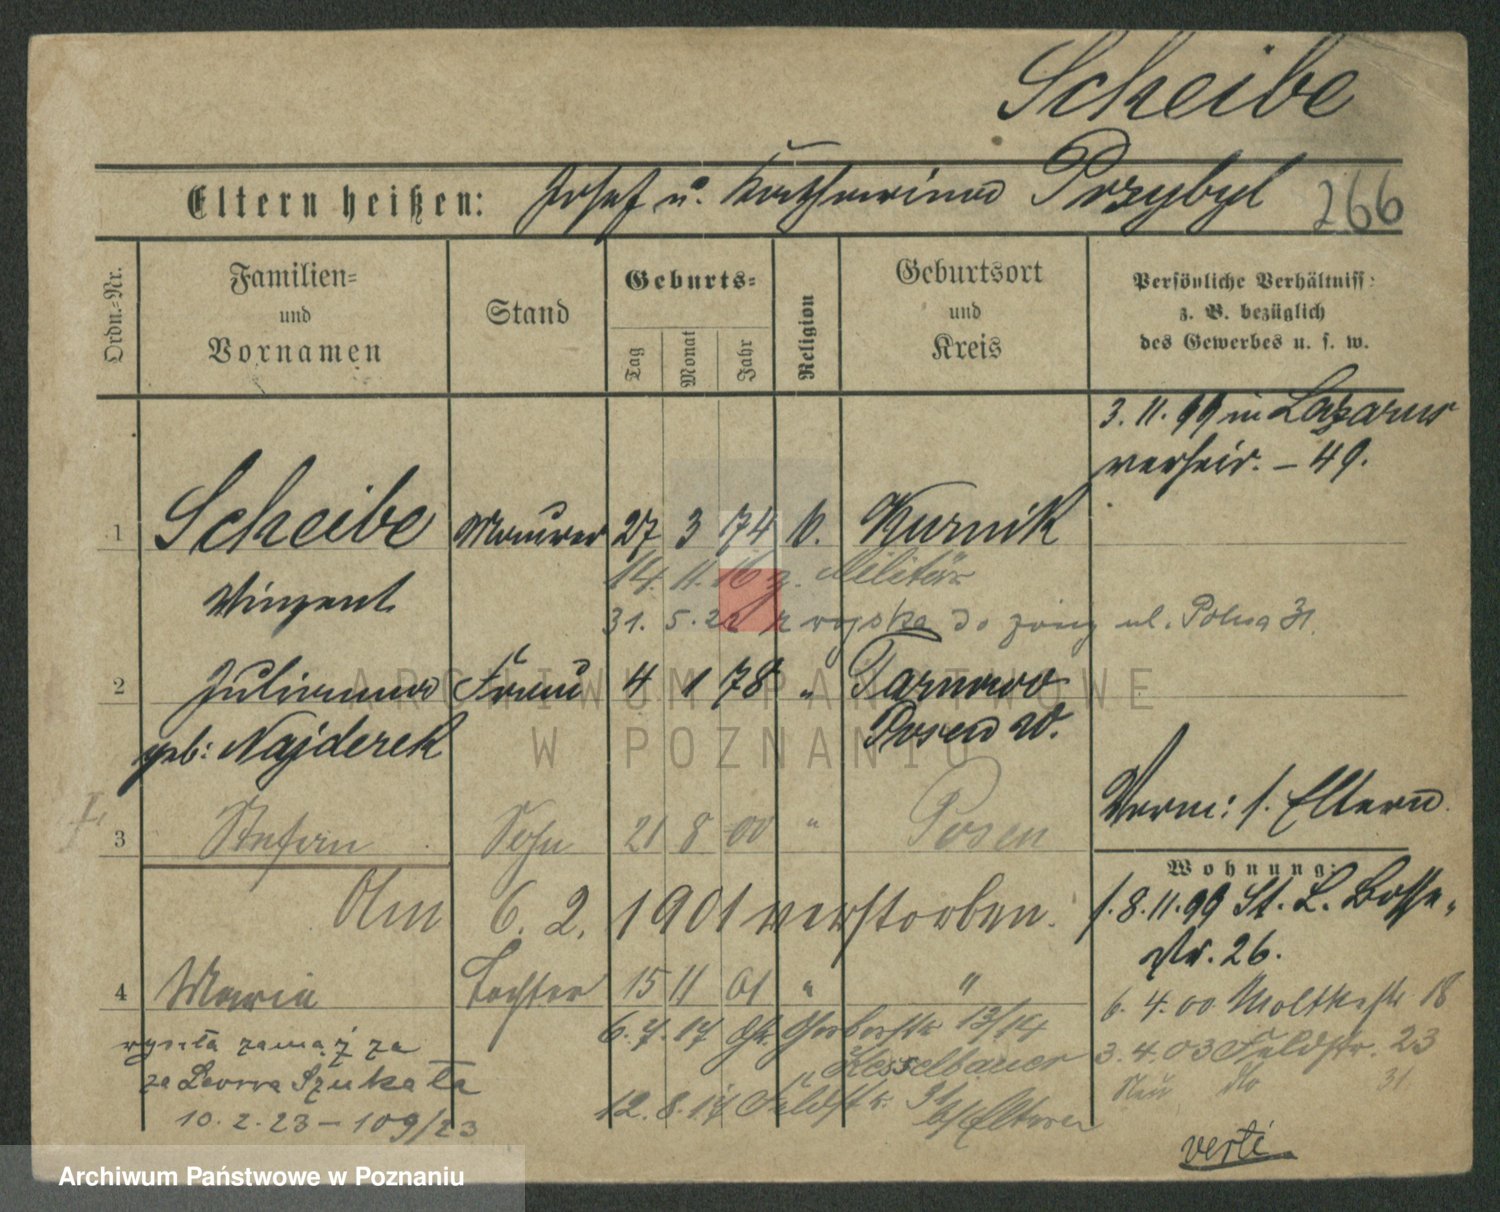 Scheibe
Eltern heißen: Josef u. Katharina Przybyl 266
Ordn.-Nr.
Familien-
und
Vornamen
Stand
Geburts-
Tag
Monat
Jahr
Religion
Geburtsort
und
Kreis
Persönliche Verhältniss
z. B. bezüglich
des Gewerbes u. s. w.
3. 11. 99 in Lazarus
verheir. – 49.
1 Scheibe Maurer 27 3 74 k. Kurnik
Vinzent
14. 11. 16 z. Militär
31. 5. 22 z wojska do żony ul. Polna 31.
2 Julianna Frau 4 1 78 " Tarnowo
geb: Najderek Posen W.
3 Stefan Sohn 21 8 00 " Posen
Verm: s. Eltern.
Wohnung:
Am 6. 2. 1901 verstorben.
f. 8. 11. 99 St. L. Bosse-
str. 26.
4 Maria Tochter 15 11 01 " "
6. 4. 00 Moltkestr 18
6. 7. 17 Gr. Gerberstr 13/14
wyszła zamąż za
" Kesselbauer
3. 4. 03 Feldstr. 23
za Leona Szukała
31
12. 8. 17 Feldstr. 31
b/ Eltern
10. 2. 23 – 109/23
verte
ARCHIWUM PAŃSTWOWE
W POZNANIU
Archiwum Państwowe w Poznaniu